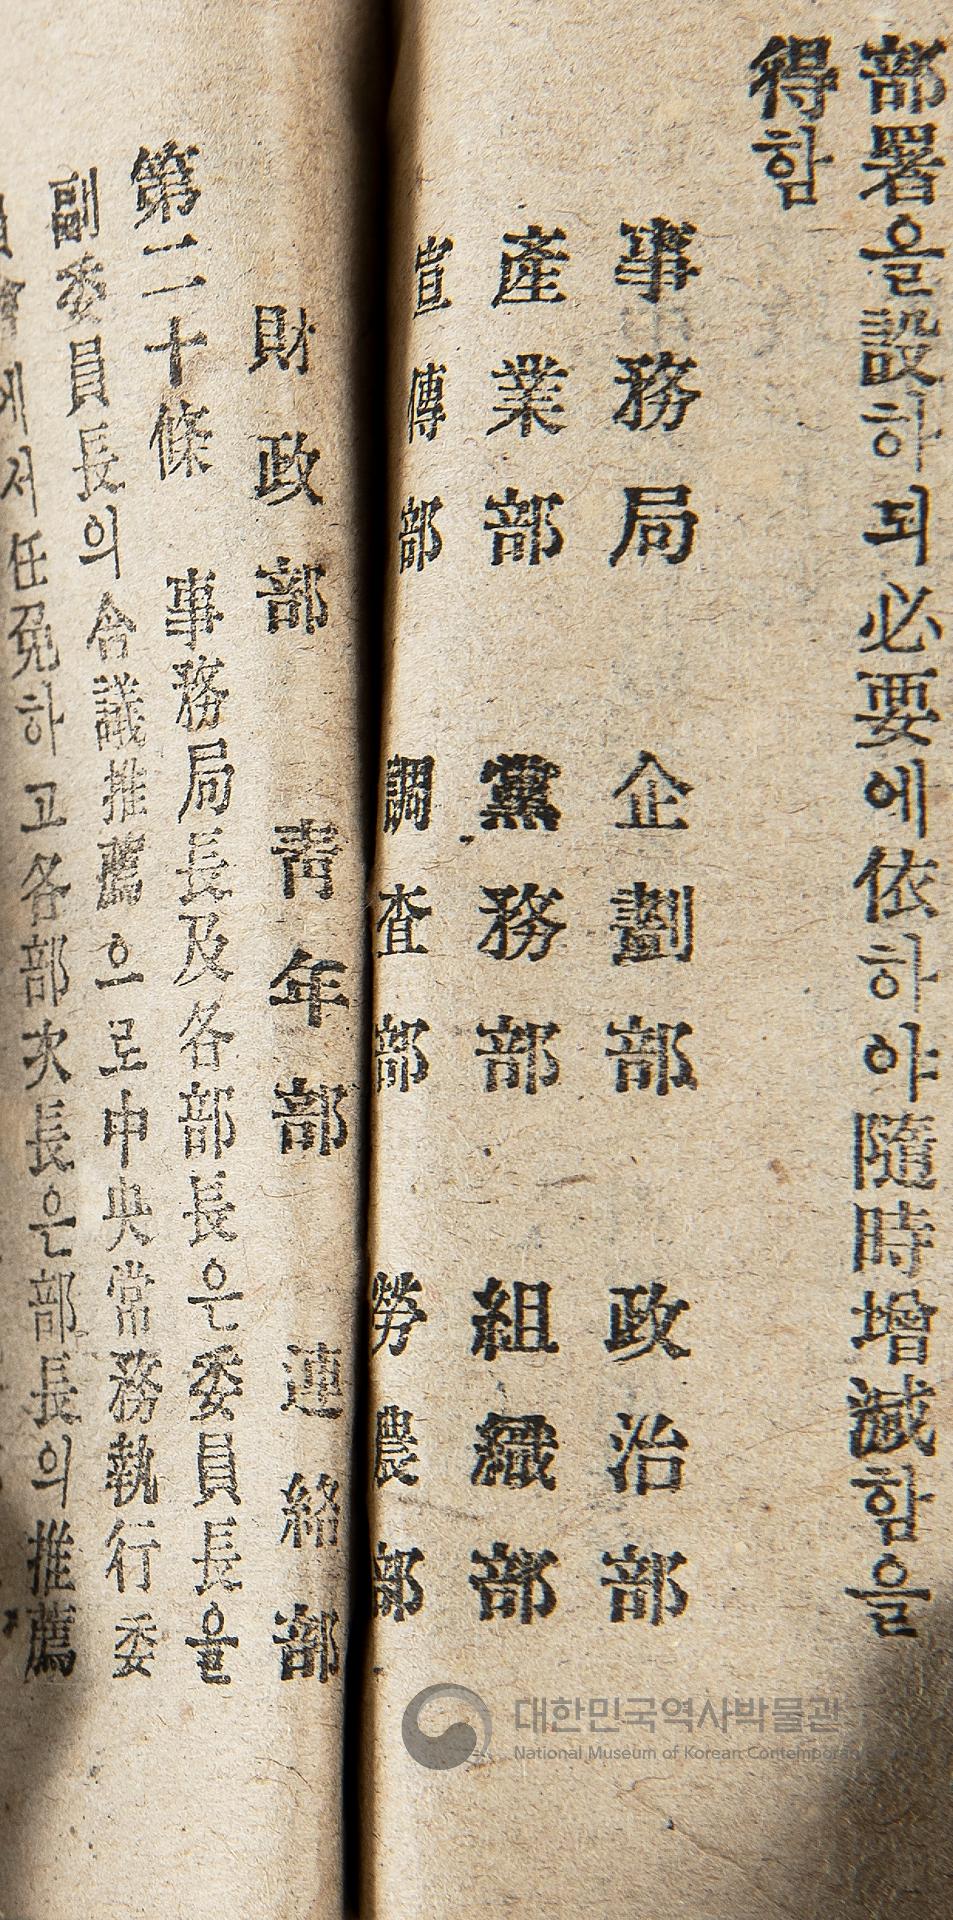 部署을設하되必要에依하야隨時增減함을
得함
事務局 企劃部 政治部
產業部 黨務部 組織部
宣傳部 調査部 勞農部
財政部 靑年部 連絡部
第二十條 事務局長及各部長은委員長을
副委員長의合議推薦으로中央常務執行委
에서任免하고各部次長은部長의推薦
대한민국역사박물관
National Museum of Korean Contemporary